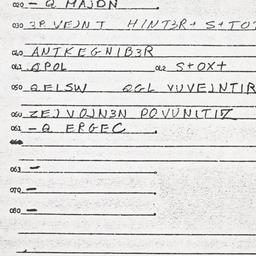 020 - Q MAJDN
030 3P VEJNT H/NT3R+ S+TOT
040 ANTKEGNIB3R
041 QPOL 042 S+OX+
050 QELSW QGL VUVEJNTIR
060 ZEJVOJN3N POVUNITIZ
061 - Q ERGEC
063 -
070 -
080 -